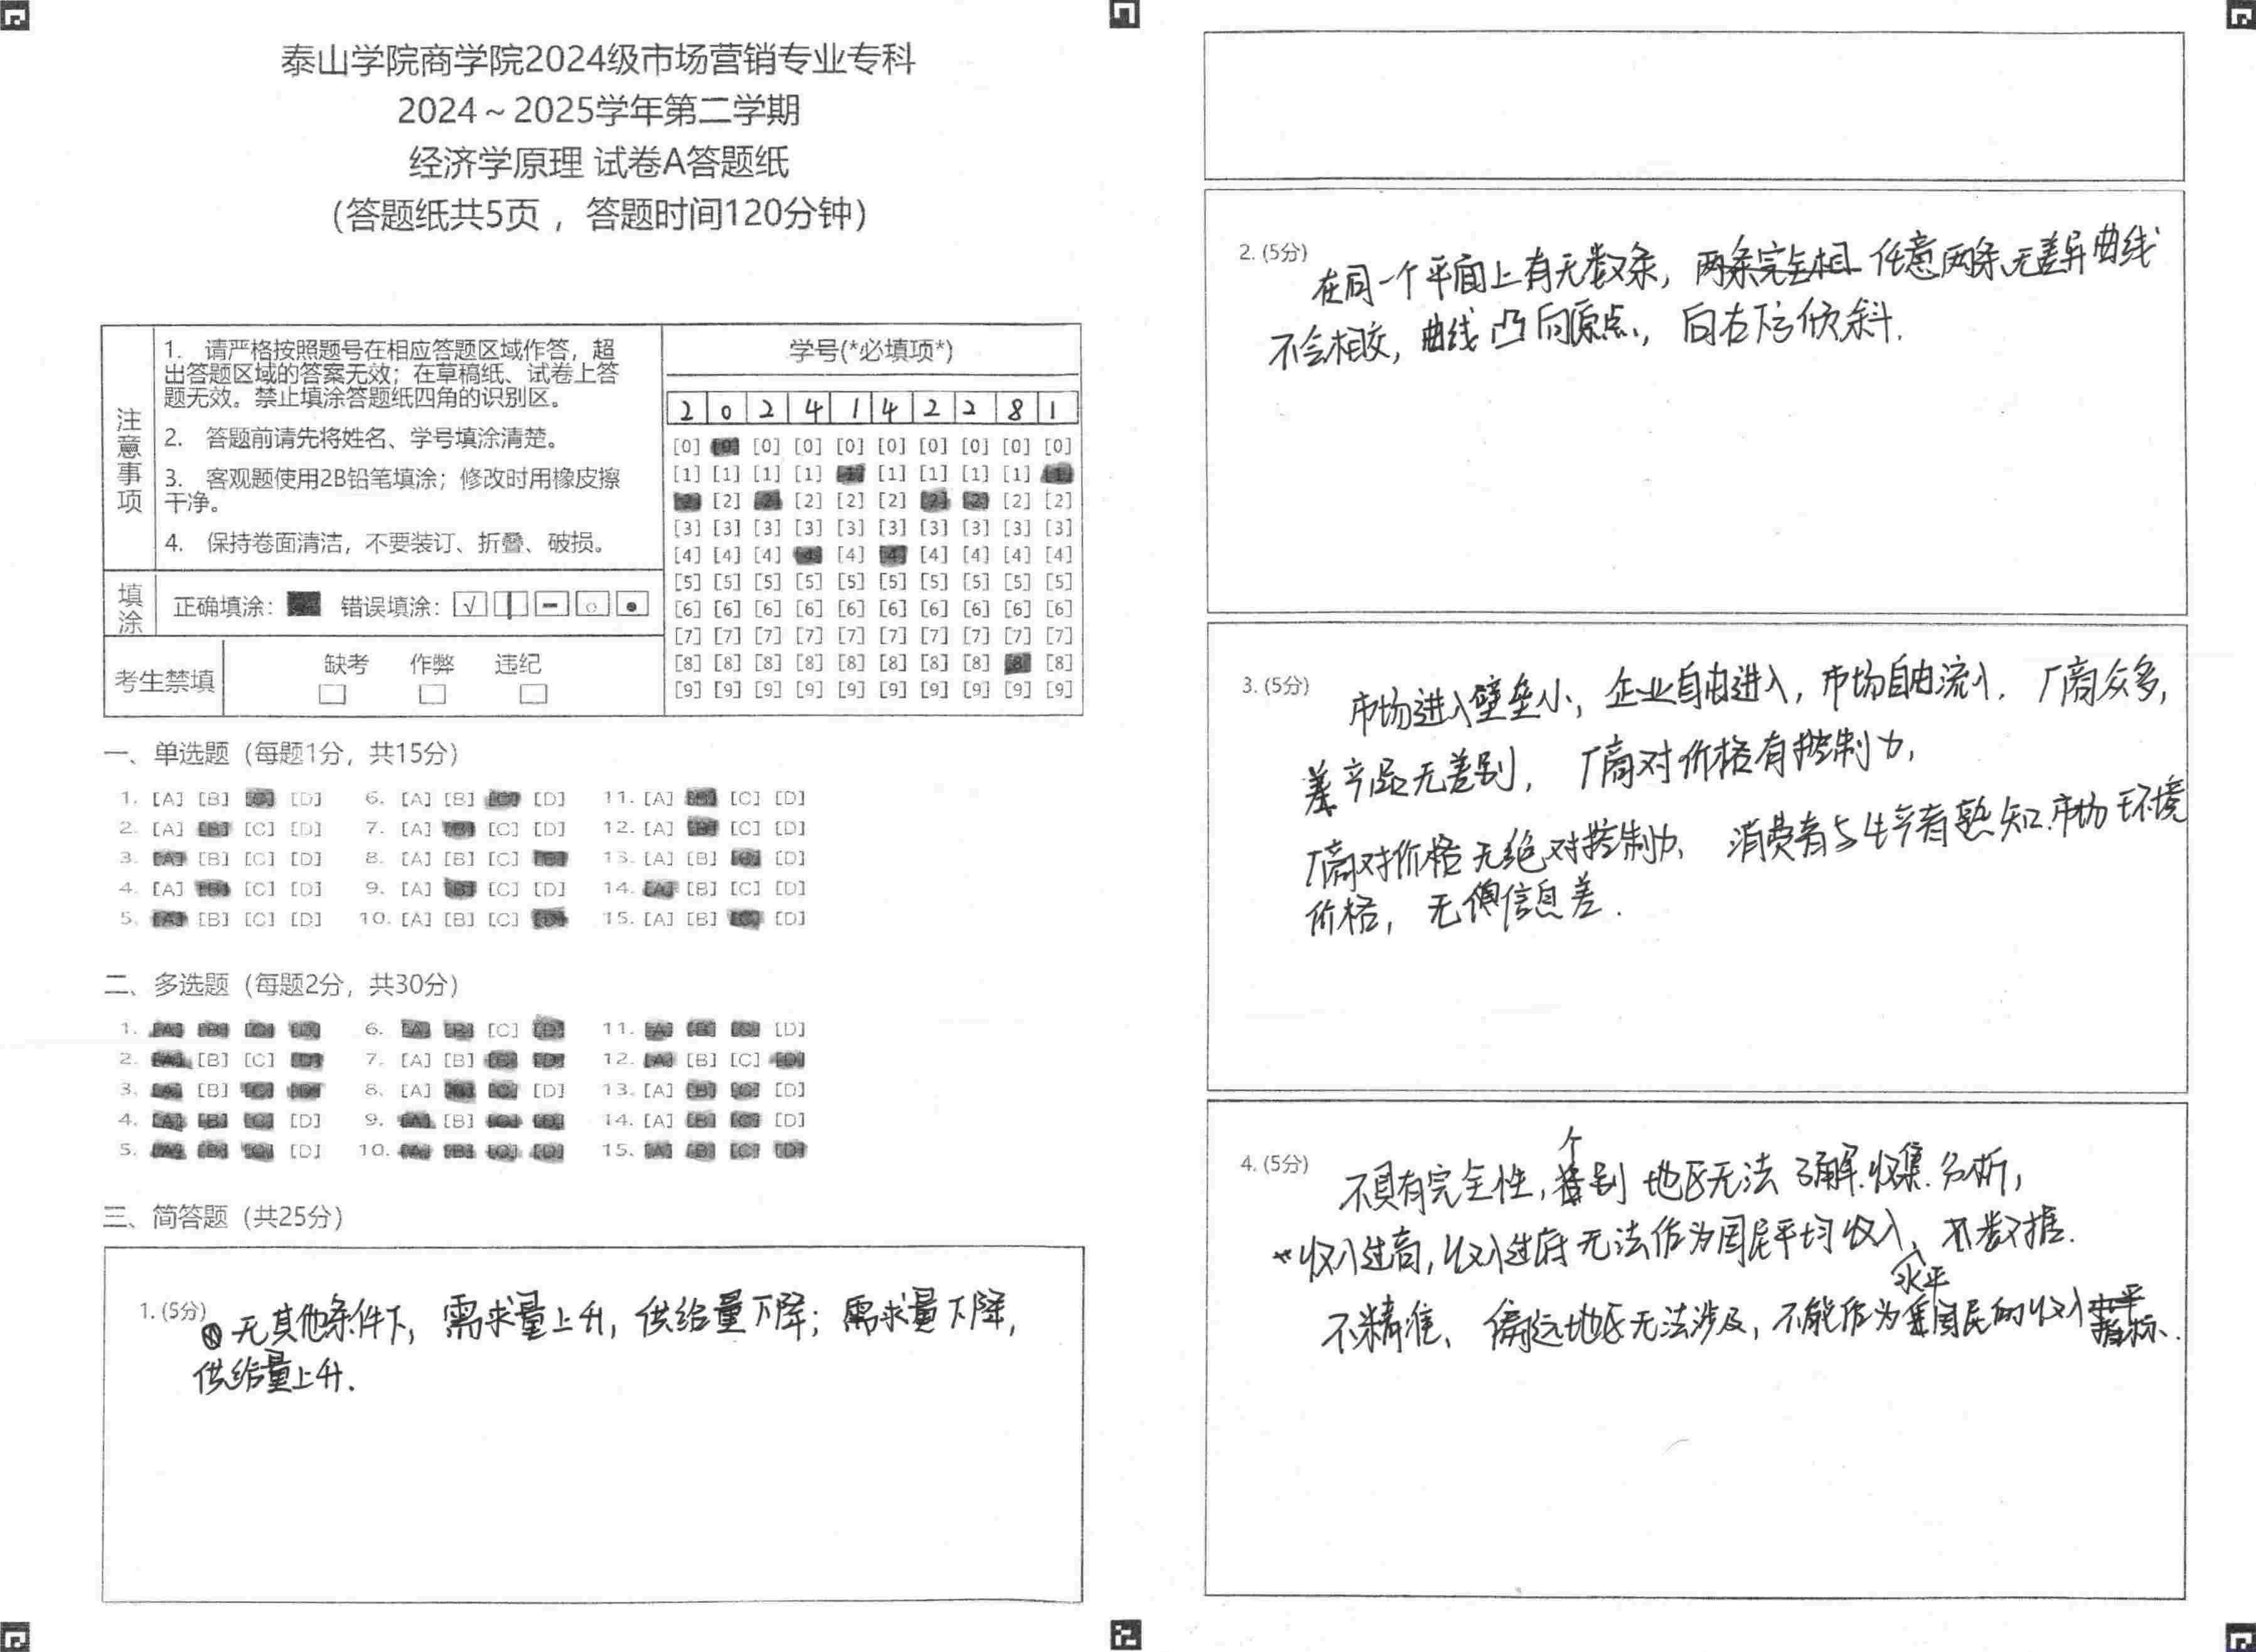 泰山学院商学院2024级市场营销专业专科
2024～2025学年第二学期
经济学原理 试卷A答题纸
(答题纸共5页 ，答题时间120分钟)
注意事项
1. 请严格按照题号在相应答题区域作答，超
出答题区域的答案无效；在草稿纸、试卷上答
题无效。禁止填涂答题纸四角的识别区。
2. 答题前请先将姓名、学号填涂清楚。
3. 客观题使用2B铅笔填涂；修改时用橡皮擦
干净。
4. 保持卷面清洁，不要装订、折叠、破损。
填涂
正确填涂： 错误填涂：
考生禁填
缺考 作弊 违纪
学号(*必填项*)
2 0 2 4 1 4 2 2 8 1
[0] [0] [0] [0] [0] [0] [0] [0] [0] [0]
[1] [1] [1] [1] [1] [1] [1] [1] [1] [1]
[2] [2] [2] [2] [2] [2] [2] [2] [2] [2]
[3] [3] [3] [3] [3] [3] [3] [3] [3] [3]
[4] [4] [4] [4] [4] [4] [4] [4] [4] [4]
[5] [5] [5] [5] [5] [5] [5] [5] [5] [5]
[6] [6] [6] [6] [6] [6] [6] [6] [6] [6]
[7] [7] [7] [7] [7] [7] [7] [7] [7] [7]
[8] [8] [8] [8] [8] [8] [8] [8] [8] [8]
[9] [9] [9] [9] [9] [9] [9] [9] [9] [9]
一、单选题（每题1分，共15分）
1. [A] [B] [C] [D] 6. [A] [B] [C] [D] 11. [A] [B] [C] [D]
2. [A] [B] [C] [D] 7. [A] [B] [C] [D] 12. [A] [B] [C] [D]
3. [A] [B] [C] [D] 8. [A] [B] [C] [D] 13. [A] [B] [C] [D]
4. [A] [B] [C] [D] 9. [A] [B] [C] [D] 14. [A] [B] [C] [D]
5. [A] [B] [C] [D] 10. [A] [B] [C] [D] 15. [A] [B] [C] [D]
二、多选题（每题2分，共30分）
1. [A] [B] [C] [D] 6. [A] [B] [C] [D] 11. [A] [B] [C] [D]
2. [A] [B] [C] [D] 7. [A] [B] [C] [D] 12. [A] [B] [C] [D]
3. [A] [B] [C] [D] 8. [A] [B] [C] [D] 13. [A] [B] [C] [D]
4. [A] [B] [C] [D] 9. [A] [B] [C] [D] 14. [A] [B] [C] [D]
5. [A] [B] [C] [D] 10. [A] [B] [C] [D] 15. [A] [B] [C] [D]
三、简答题（共25分）
1. (5分) 无其他条件下，需求量上升，供给量下降；需求量下降，
供给量上升.
2. (5分) 在同一个平面上有无数条，两条完全相 任意两条无差异曲线
不会相交，曲线凸向原点，向右下方倾斜.
3. (5分) 市场进入壁垒小，企业自由进入，市场自由流入. 厂商众多，
产品无差别，厂商对价格有控制力，
厂商对价格无绝对控制力、消费者与生产者熟知市场环境
价格，无信息差.
4. (5分) 不具有完全性，个别地区无法了解.收集.分析，
收入过高，收入过府无法作为国民平均收入、数据.
水平
不精准、偏远地区无法涉及，不能作为国民的收入指标.